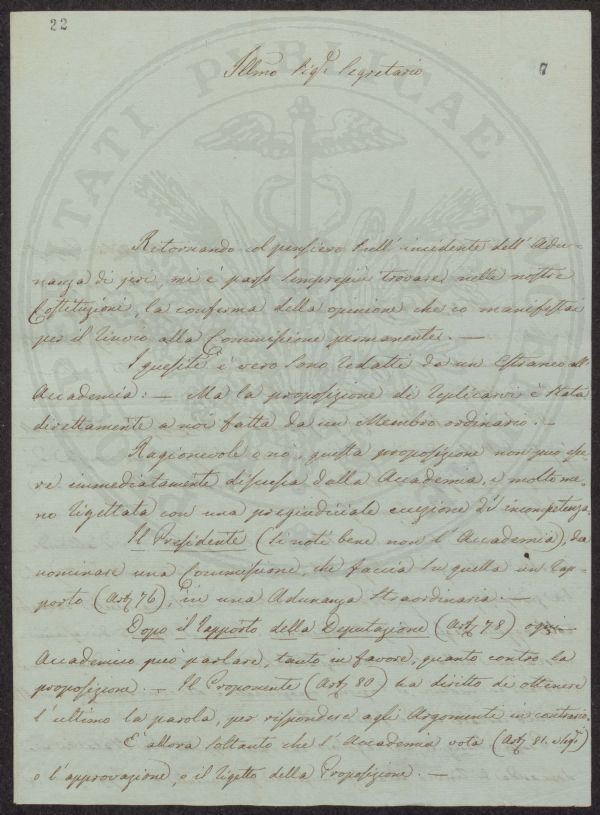 22
7
Illmo Sigr Segretario
Ritornando col pensiero sull' incidente dell' Adu-
nanza di jeri, mi è parso sempre più trovare nelle nostre
Costituzioni, la conferma della opinione che io manifestai
per il rinvio alla Commissione permanente. —
I quesiti è vero sono redatti da un Estraneo all'
Accademia: — Ma la proposizione di replicarvi è stata
direttamente a noi fatta da un Membro ordinario. —
Ragionevole o no, questa proposizione non può esse-
re immediatamente discussa dalla Accademia, e molto me-
no rigettata con una pregiudiciale eccezione d' incompetenza.
Il Presidente (si noti bene non l' Accademia), dee
nominare una Commissione, che faccia su quella un rap-
porto (Art. 76), in una Adunanza straordinaria. —
Dopo il rapporto della Deputazione (Art. 78) ogni
Accademico può parlare, tanto in favore, quanto contro la
proposizione. — Il Proponente (Art. 80) ha diritto di ottenere
l' ultimo la parola, per rispondere agli Argomenti in contrario.
E' allora soltanto che l' Accademia vota (Art. 81. e seg.)
o l' approvazione, o il rigetto della Proposizione. —
PUBLICAE